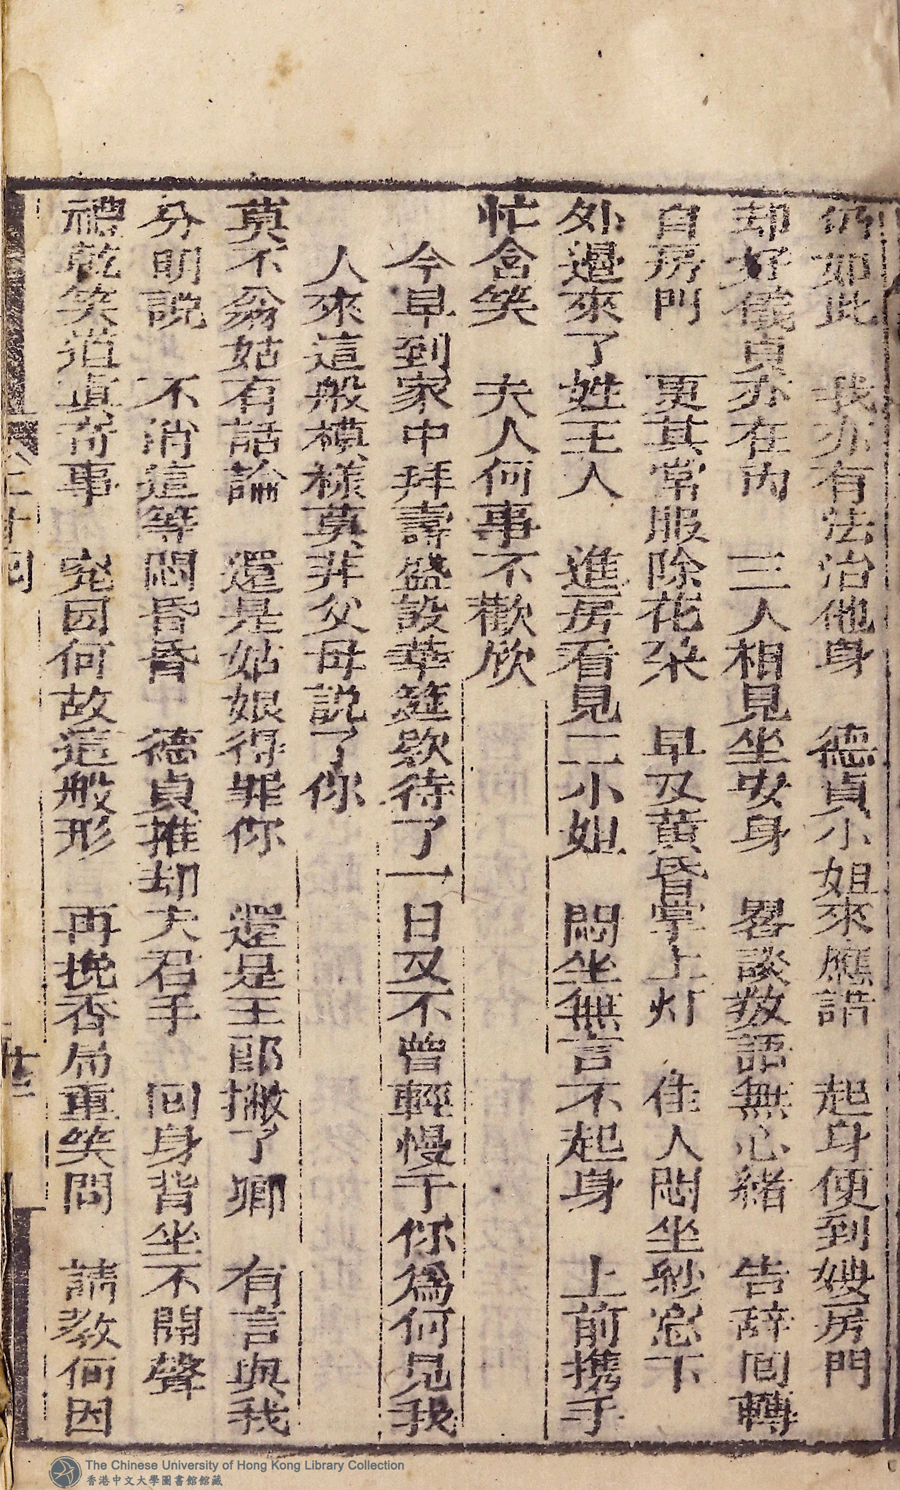 仍如此　我亦有法治他身　德貞小姐來應諾　起身便到嫂房門
却好儀貞亦在內　三人相見坐安身　畧談数語無心緒　告辞囘轉
自房門　更其常服除花朶　早又黄昏掌上灯　佳人悶坐紗窓下
外邉來了姓王人　進房看見二小姐　悶坐無言不起身　上前携手
忙含笑　夫人何事不歡欣
今早到家中拜壽盛設華筵欵待了一日又不曾輕慢于你爲何見我
人來這般模樣莫非父母説了你
莫不翁姑有話論　還是姑娘得罪你　還是王郎撇了卿　有言與我
分明説　不消這等悶昏昏　德貞推却夫君手　回身背坐不開聲
禮乾笑道真奇事　兗因何故這般形　再挽香肩重笑問　請教何因
卷二十四
廿三
The Chinese University of Hong Kong Library Collection
香港中文大學圖書館館藏